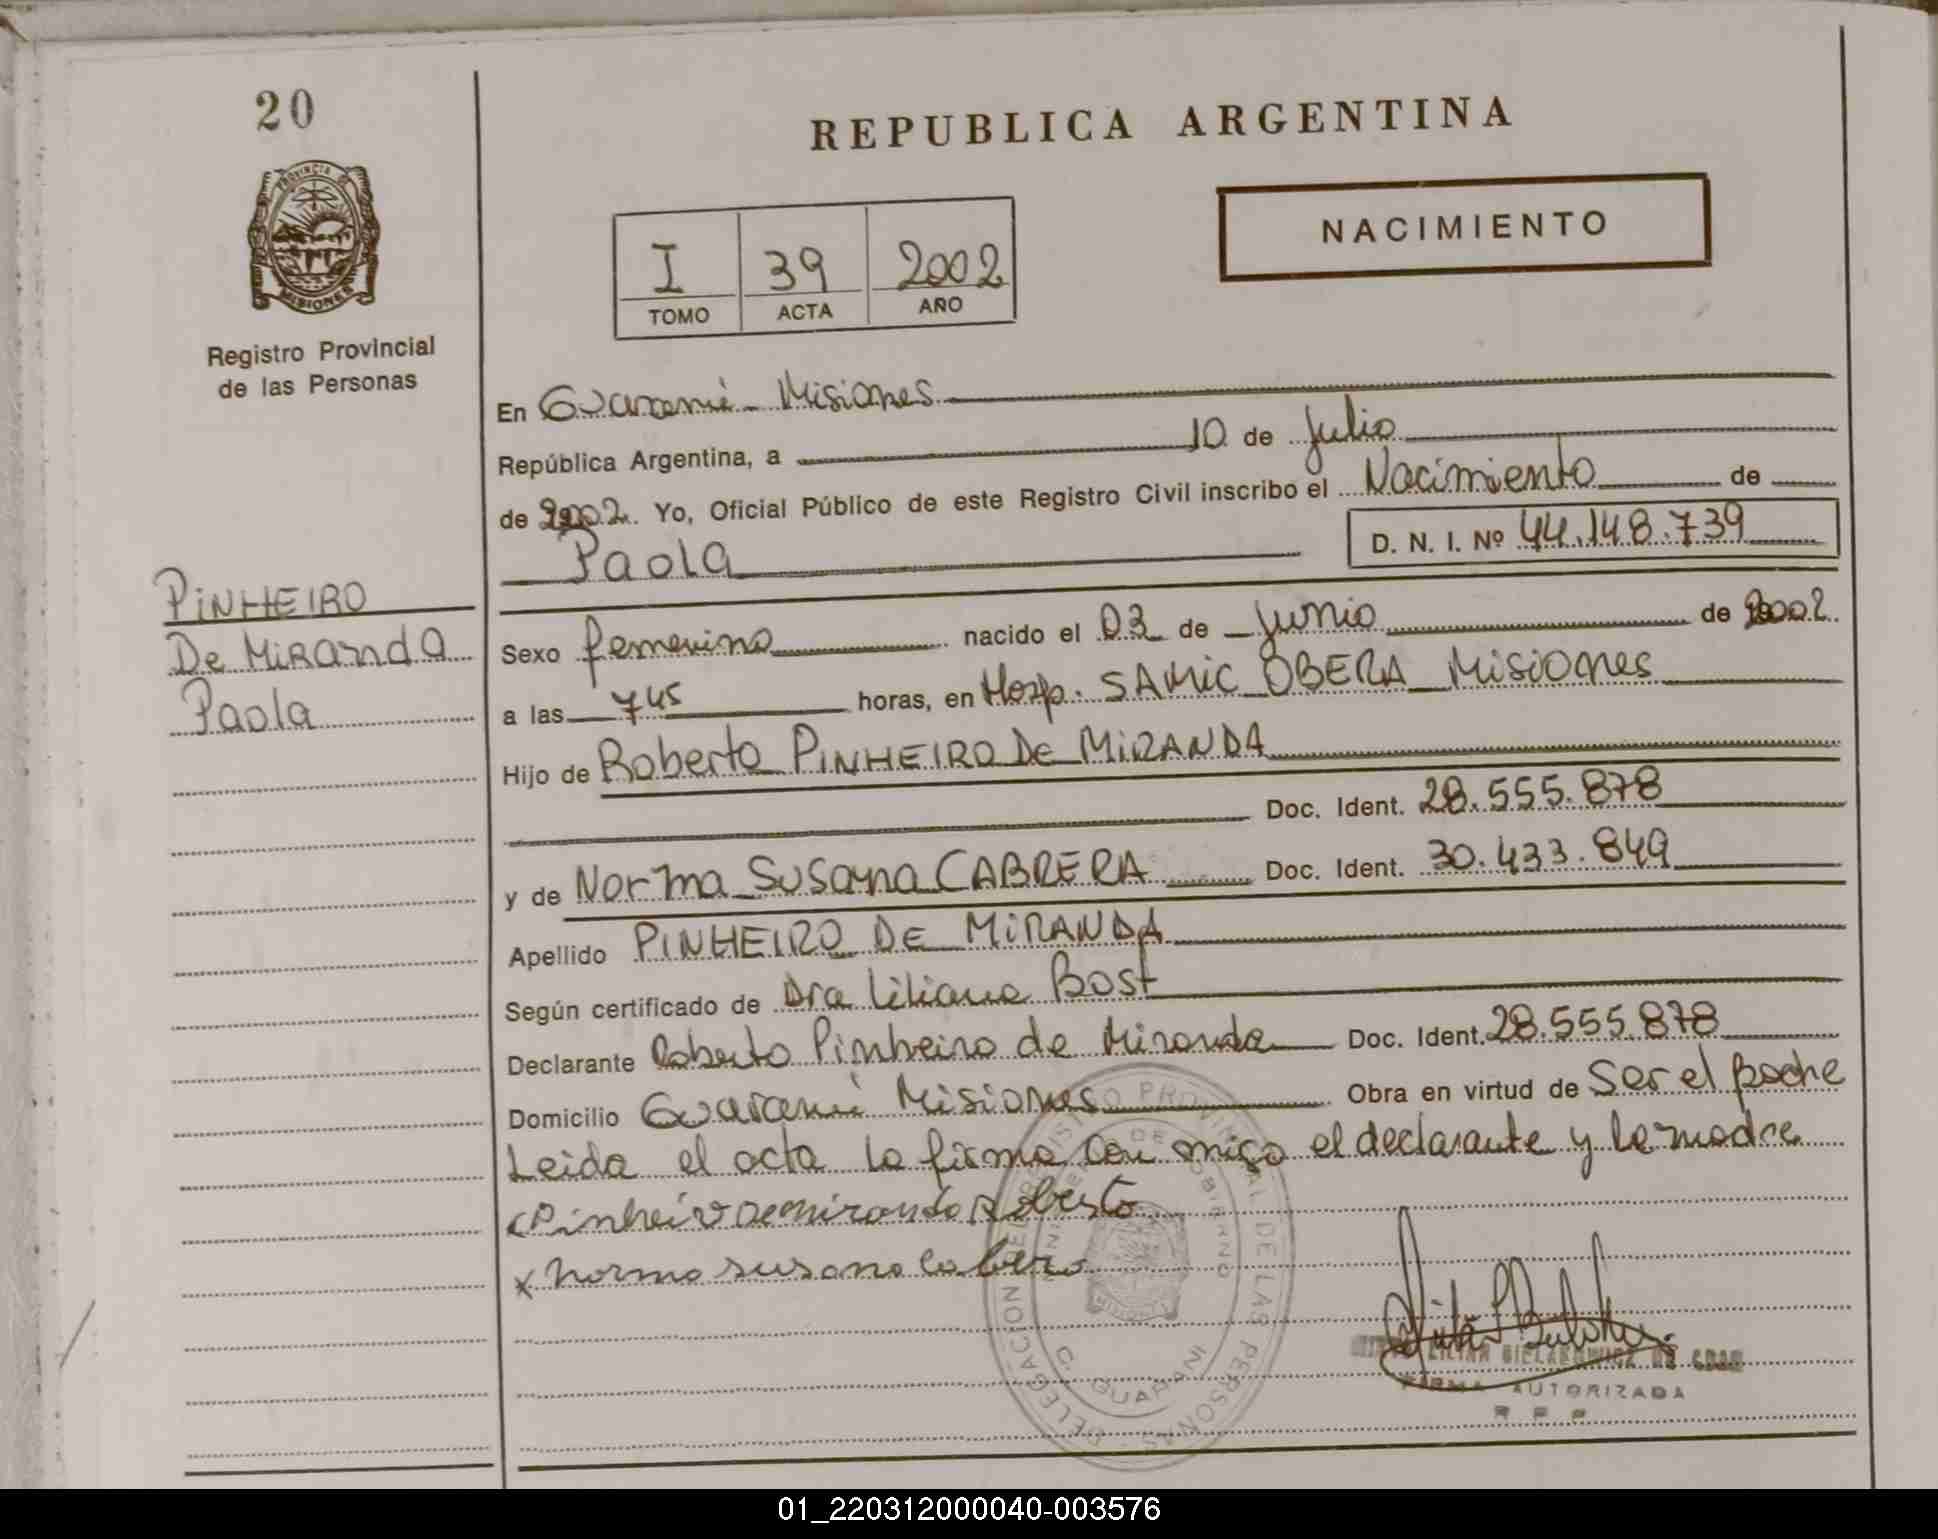 20
PROVINCIA DE
MISIONES
Registro Provincial
de las Personas
PINHEIRO
De MiRanda
Paola
REPUBLICA ARGENTINA
NACIMIENTO
I 39 2002
TOMO ACTA AÑO
En Guaraní - Misiones
República Argentina, a 10 de Julio
de 2002. Yo, Oficial Público de este Registro Civil inscribo el Nacimiento de
Paola D. N. I. Nº 44.148.739
Sexo femenino nacido el 03 de Junio de 2002.
a las 7 45 horas, en Hosp. SAMIC OBERA Misiones
Hijo de Roberto PINHEIRO De MiRANDA
Doc. Ident. 28.555.878
y de Norma Susana CABRERA Doc. Ident. 30.433.849
Apellido PINHEIRO DE MiRANDA
Según certificado de Dra Liliana Bost
Declarante Roberto Pinheiro de Miranda Doc. Ident. 28.555.878
Domicilio Guaraní Misiones Obra en virtud de Ser el padre
Leida el acta la firma con migo el declarante y la madre
Pinheiro de miranda Roberto
x Norma susana cabrera
DELEGACION DEL REGISTRO PROVINCIAL DE LAS PERSONAS
MINISTERIO DE GOBIERNO
G. GUARANI
MISIONES
LILIAN
FIRMA AUTORIZADA
R P P
01_220312000040-003576